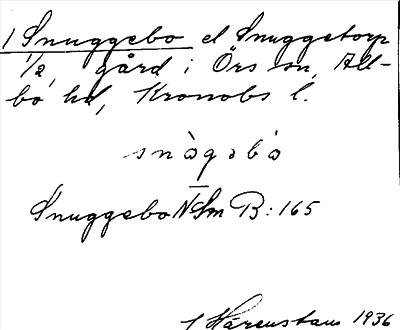 1 Snuggebo el Snuggetorp
1/2 gård i Örs sn, All-
bo hd, Kronobs l.
snàgəbò
Snuggebo NSm B: 165
1936